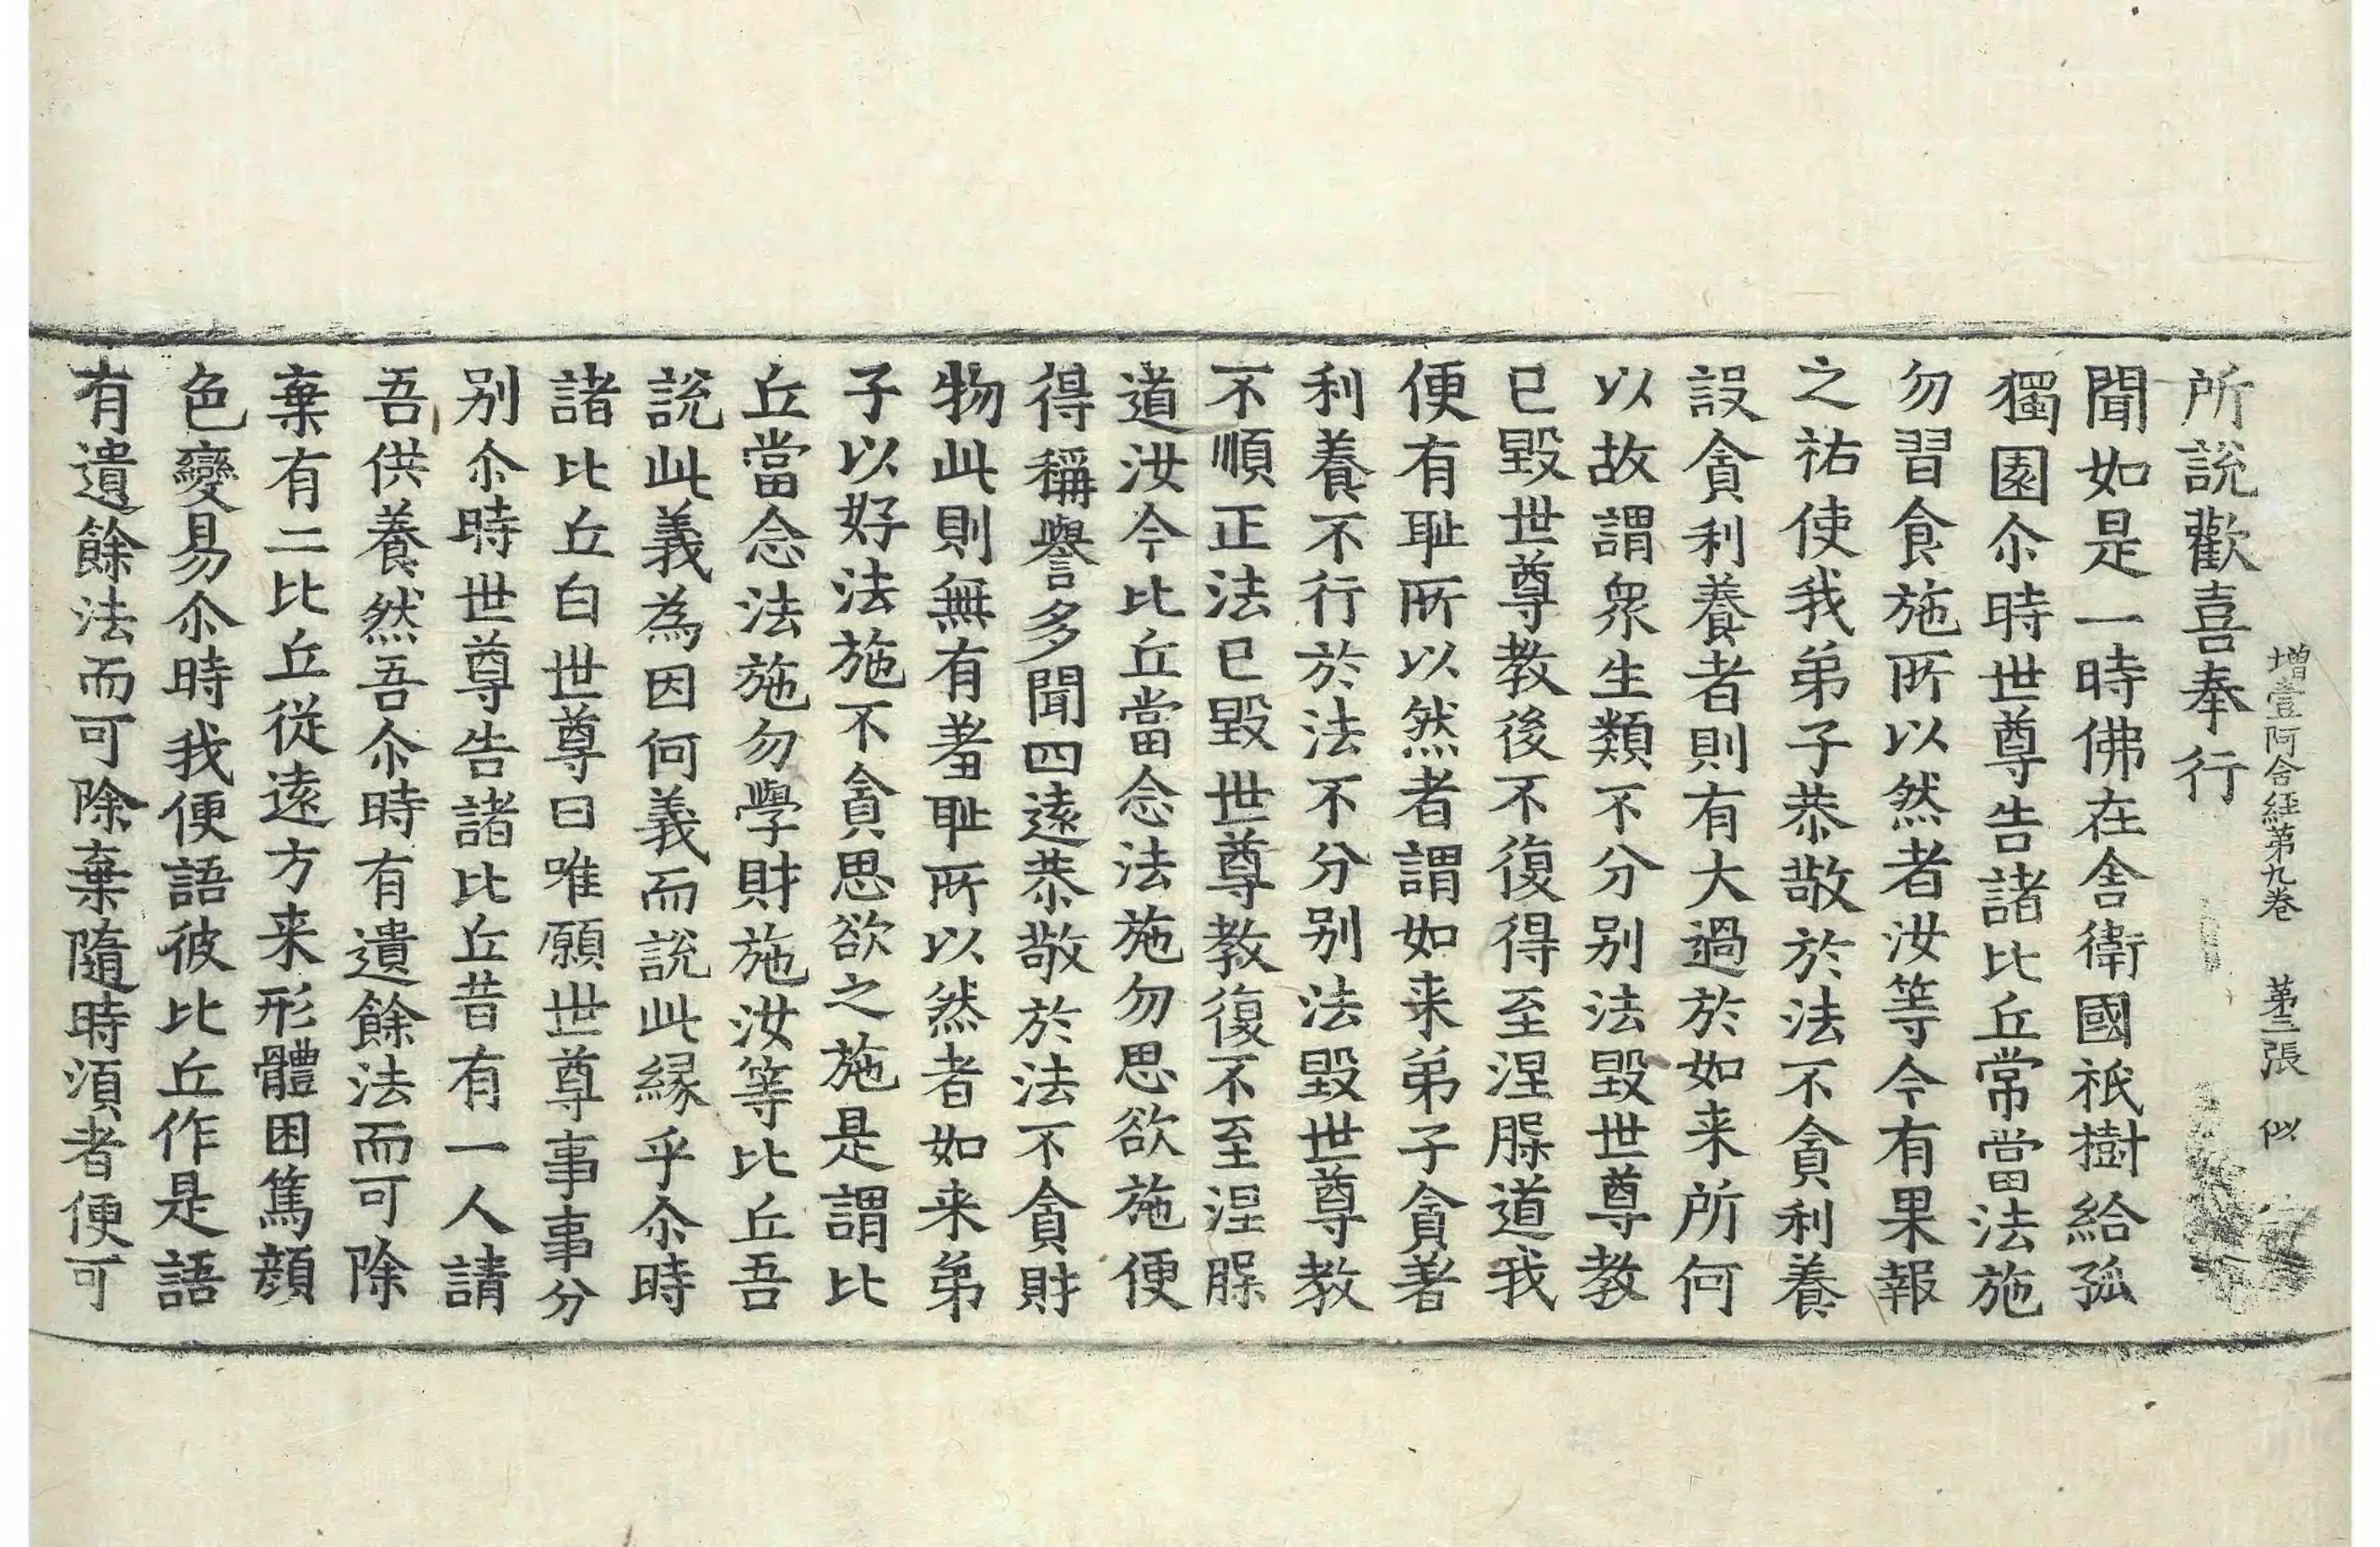 增壹阿含經第九卷　第三張　似
所說歡喜奉行
聞如是一時佛在舍衛國祇樹給孤
獨園尒時世尊告諸比丘常當法施
勿習食施所以然者汝等今有果報
之祐使我弟子恭敬於法不貪利養
設貪利養者則有大過於如来所何
以故謂衆生類不分别法毀世尊教
已毀世尊教後不復得至涅腂道我
便有耻所以然者謂如来弟子貪著
利養不行於法不分别法毀世尊教
不順正法已毀世尊教復不至涅腂
道汝今比丘當念法施勿思欲施便
得稱譽多聞四遠恭敬於法不貪財
物此則無有羞耻所以然者如来弟
子以好法施不貪思欲之施是謂比
丘當念法施勿學財施汝等比丘吾
說此義為因何義而說此緣乎尒時
諸比丘白世尊曰唯願世尊事事分
别尒時世尊告諸比丘昔有一人請
吾供養然吾尒時有遺餘法而可除
棄有二比丘從遠方来形體困篤顔
色變易尒時我便語彼比丘作是語
有遺餘法而可除棄隨時湏者便可